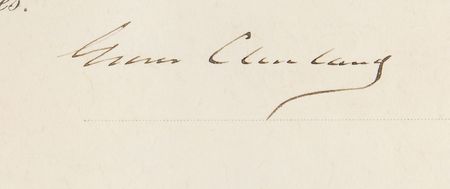 es.
Grover Cleveland